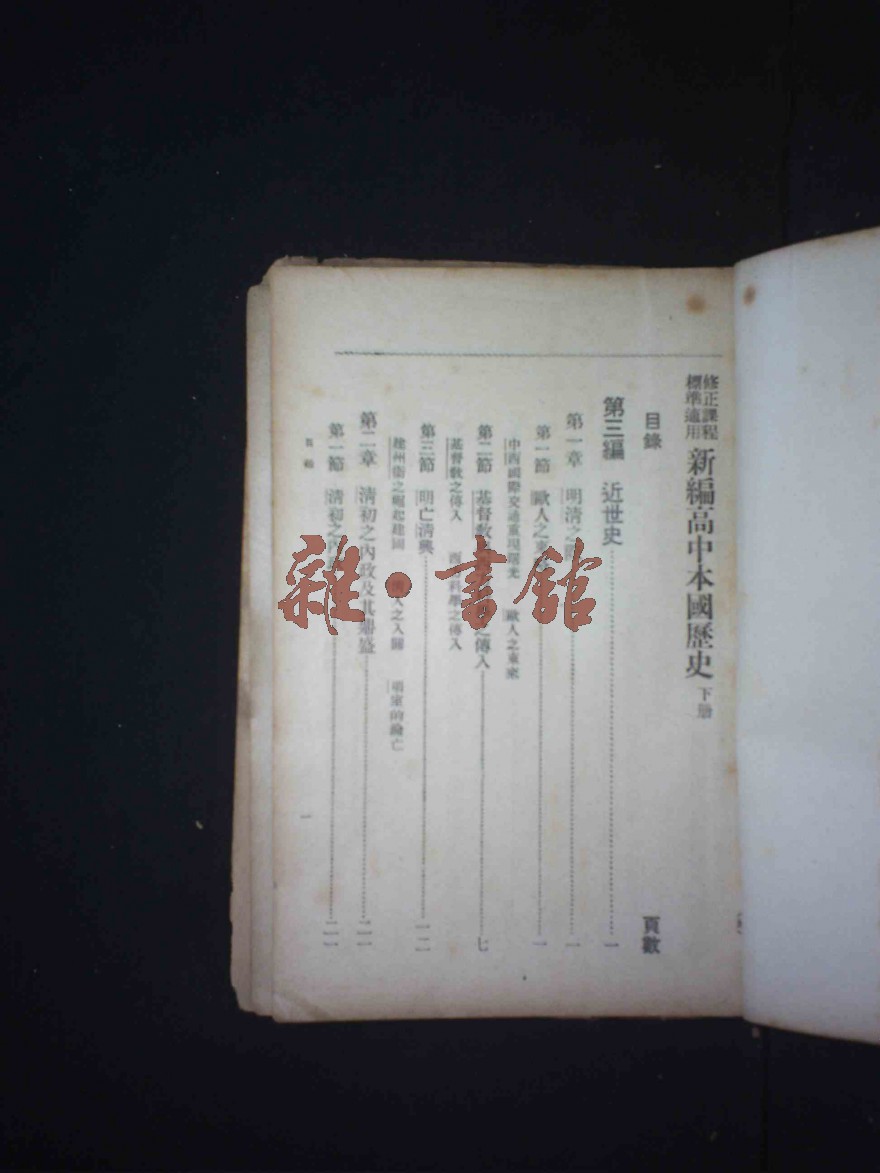 修正課程
標準適用
新編高中本國歷史 下册
目錄 頁數
第三編 近世史 一
第一章 明清之 一
第一節 歐人之東 一
中西國際交通 歐人之東來
第二節 基督教 之傳入 七
基督教之傳入 西 科學之傳入
第三節 明亡清興 一二
建州衛之崛起建國 之入關 明室的淪亡
第二章 清初之內政及其 盛 二一
第一節 清初之內 二一
目錄 一
雜·書館